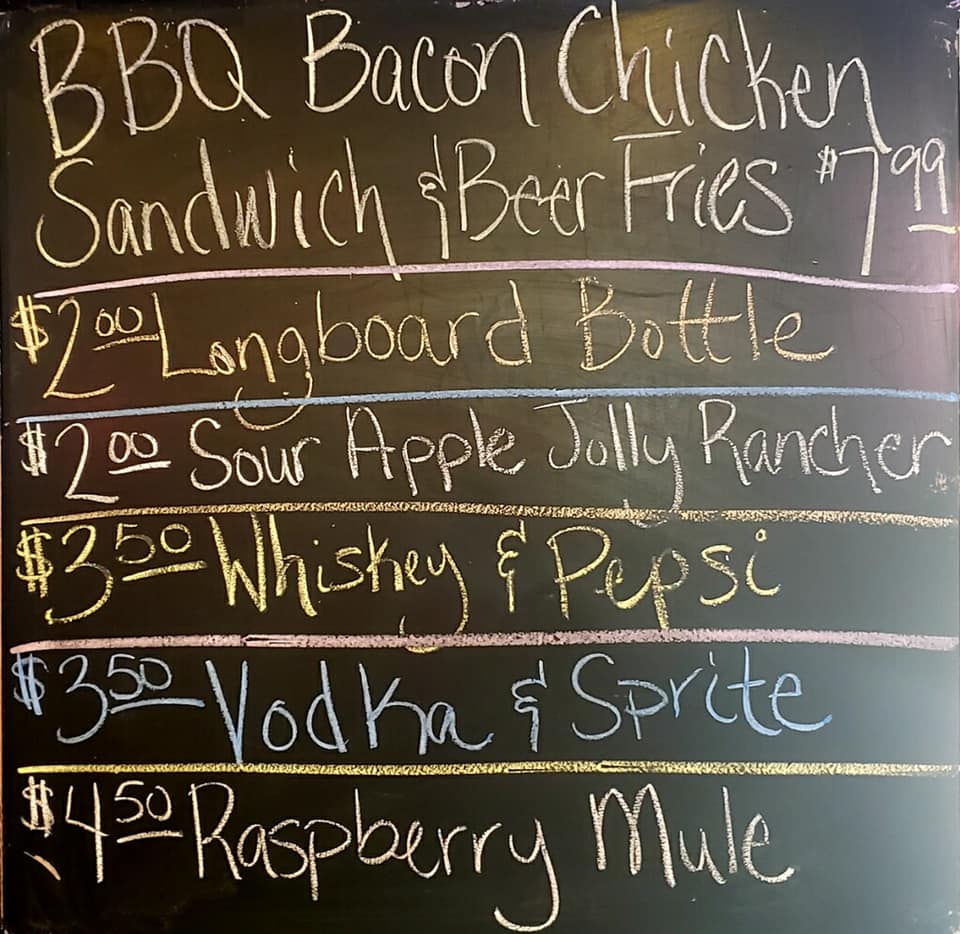 BBQ Bacon Chicken
Sandwich & Beer Fries $7.99
$2.00 Longboard Bottle
$2.00 Sour Apple Jolly Rancher
$3.50 Whiskey & Pepsi
$3.50 Vodka & Sprite
$4.50 Raspberry Mule